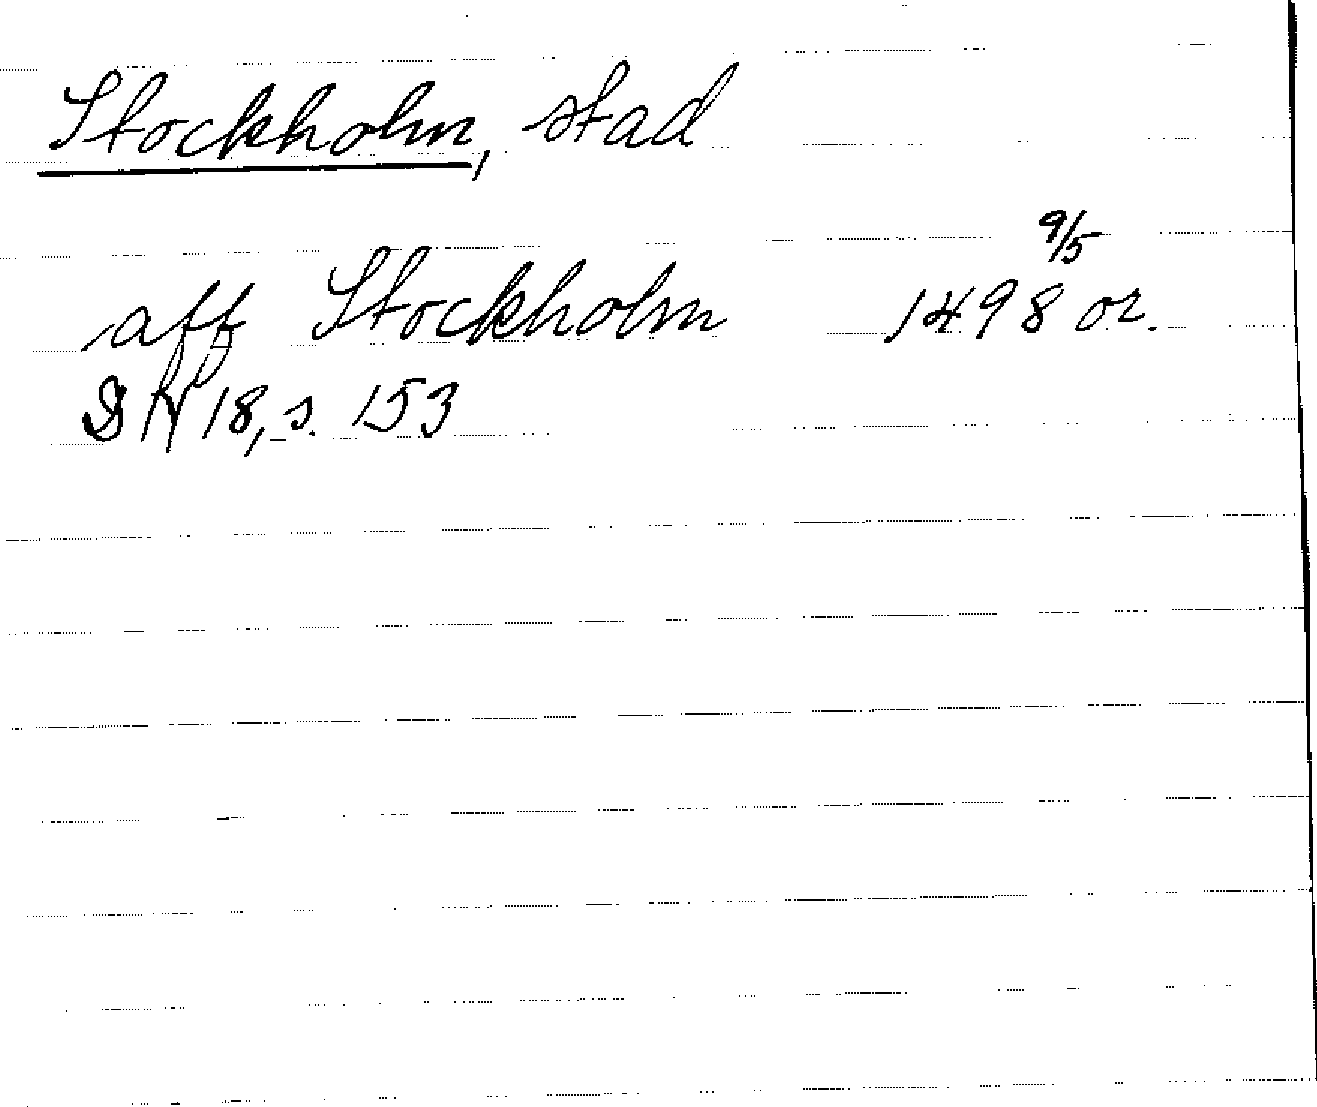 Stockholm, stad
9/5
aff Stockholm 1498 or.
SH 18, s. 153